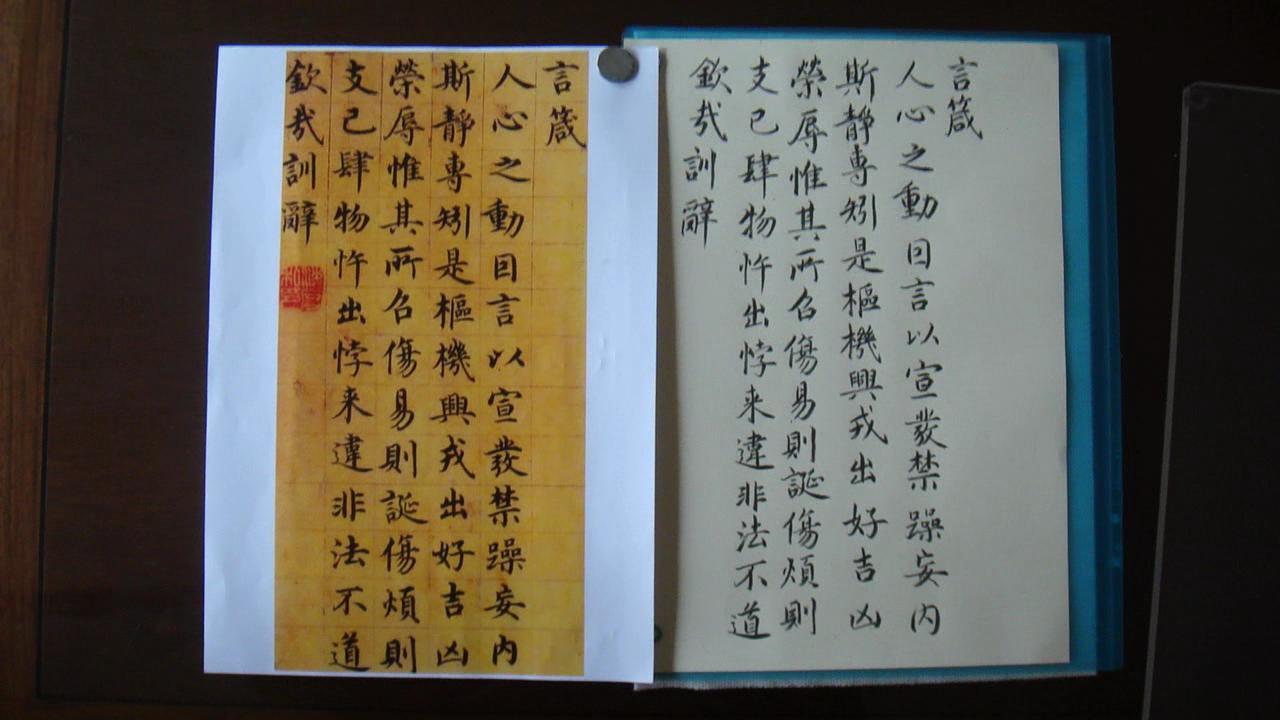 言箴
人心之動囙言以宣發禁躁妄内
斯靜專矧是樞機興戎出好吉凶
榮辱惟其所召傷易則誕傷煩則
支己肆物忤出悖来違非法不道
欽哉訓辭
言箴
人心之動囙言以宣發禁躁妄内
斯靜專矧是樞機興戎出好吉凶
榮辱惟其所召傷易則誕傷煩則
支己肆物忤出悖来違非法不道
欽哉訓辭